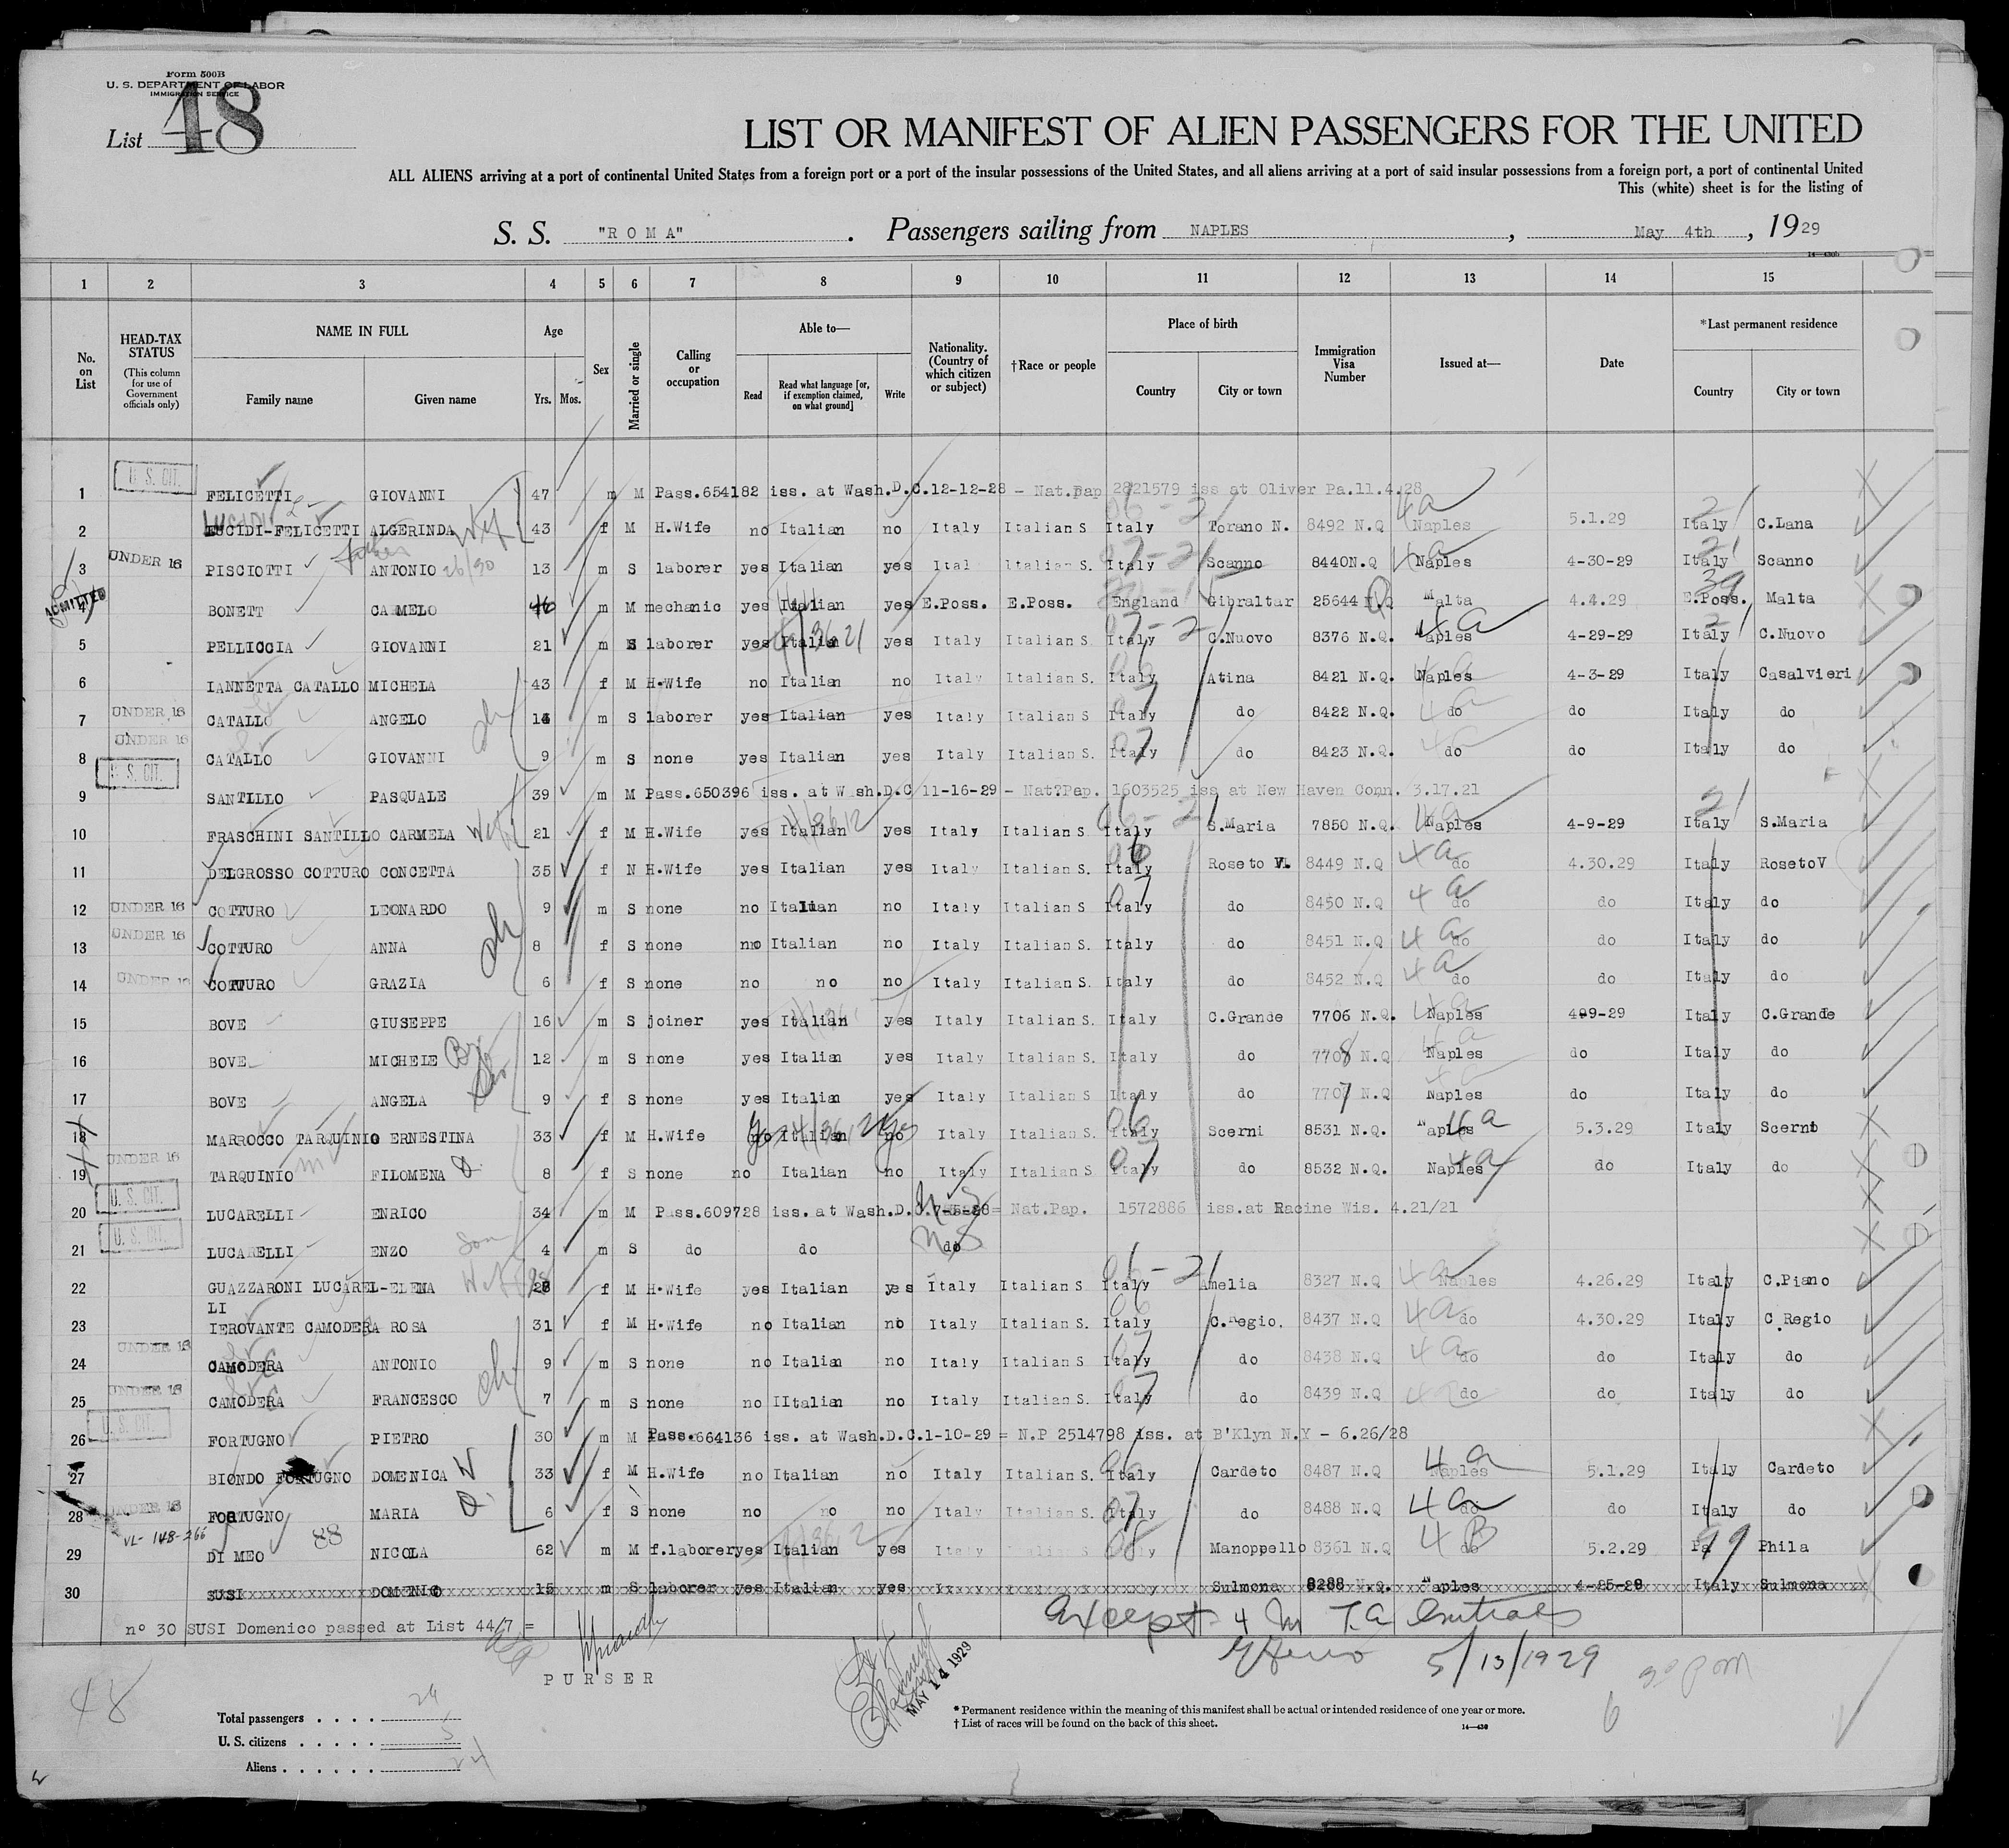 Form 500B
U. S. DEPARTMENT OF LABOR
IMMIGRATION SERVICE
List 48
LIST OR MANIFEST OF ALIEN PASSENGERS FOR THE UNITED
ALL ALIENS arriving at a port of continental United States from a foreign port or a port of the insular possessions of the United States, and all aliens arriving at a port of said insular possessions from a foreign port, a port of continental United
This (white) sheet is for the listing of
S. S. "ROMA" . Passengers sailing from NAPLES , May 4th , 1929
14—430b
1 2 3 4 5 6 7 8 9 10 11 12 13 14 15
No. on List
HEAD-TAX STATUS (This column for use of Government officials only)
NAME IN FULL Family name Given name
Age Yrs. Mos.
Sex
Married or single
Calling or occupation
Able to— Read Read what language [or, if exemption claimed, on what ground] Write
Nationality. (Country of which citizen or subject)
†Race or people
Place of birth Country City or town
Immigration Visa Number
Issued at—
Date
*Last permanent residence Country City or town
1 U. S. CIT. FELICETTI GIOVANNI 47 m M Pass.654182 iss. at Wash.D.C.12-12-28 - Nat.Pap 2821579 iss at Oliver Pa.11.4.28
2 LUCIDI-FELICETTI ALGERINDA Wife 43 f M H.Wife no Italian no Italy Italian S Italy Torano N. 8492 N.Q Naples 5.1.29 Italy C.Lana
3 UNDER 16 PISCIOTTI ANTONIO 13 m S laborer yes Italian yes Ital Italian S. Italy Scanno 8440N.Q Naples 4-30-29 Italy Scanno
4 ADMITTED BONETT CARMELO 46 m M mechanic yes Italian yes E.Poss. E.Poss. England Gibraltar 25644 N.Q Malta 4.4.29 E.Poss. Malta
5 PELLICCIA GIOVANNI 21 m S laborer yes Italian yes Italy Italian S. Italy C.Nuovo 8376 N.Q. Naples 4-29-29 Italy C.Nuovo
6 IANNETTA CATALLO MICHELA 43 f M H.Wife no Italian no Italy Italian S. Italy Atina 8421 N.Q. Naples 4-3-29 Italy Casalvieri
7 UNDER 16 CATALLO ANGELO 14 m S laborer yes Italian yes Italy Italian S Italy do 8422 N.Q. do do Italy do
8 UNDER 16 CATALLO GIOVANNI 9 m S none yes Italian yes Italy Italian S. Italy do 8423 N.Q. do do Italy do
9 U. S. CIT. SANTILLO PASQUALE 39 m M Pass.650396 iss. at Wash.D.C 11-16-29 - Nat.Pap. 1603525 iss at New Haven Conn. 3.17.21
10 FRASCHINI SANTILLO CARMELA Wife 21 f M H.Wife yes Italian yes Italy Italian S. Italy S.Maria 7850 N.Q. Naples 4-9-29 Italy S.Maria
11 DELGROSSO COTTURO CONCETTA 35 f N H.Wife yes Italian yes Italy Italian S. Italy Roseto V. 8449 N.Q do 4.30.29 Italy RosetoV
12 UNDER 16 COTTURO LEONARDO 9 m S none no Italian no Italy Italian S Italy do 8450 N.Q do do Italy do
13 UNDER 16 COTTURO ANNA 8 f S none no Italian no Italy Italian S. Italy do 8451 N.Q do do Italy do
14 UNDER 16 COTTURO GRAZIA 6 f S none no no no Italy Italian S. Italy do 8452 N.Q do do Italy do
15 BOVE GIUSEPPE 16 m S joiner yes Italian yes Italy Italian S. Italy C.Grande 7706 N.Q. Naples 409-29 Italy C.Grande
16 BOVE MICHELE Br 12 m S none yes Italian yes Italy Italian S. Italy do 7708 N.Q Naples do Italy do
17 BOVE ANGELA 9 f S none yes Italian yes Italy Italian S Italy do 7707 N.Q Naples do Italy do
18 MARROCCO TARQUINIO ERNESTINA 33 f M H.Wife no Italian no Italy Italian S. Italy Scerni 8531 N.Q. Naples 5.3.29 Italy Scerni
19 UNDER 16 TARQUINIO FILOMENA D. 8 f S none no Italian no Italy Italian S. Italy do 8532 N.Q. Naples do Italy do
20 U. S. CIT. LUCARELLI ENRICO 34 m M Pass.609728 iss. at Wash.D.C.7-5-28= Nat.Pap. 1572886 iss.at Racine Wis. 4.21/21
21 U. S. CIT. LUCARELLI ENZO Son 4 m S do do do
22 GUAZZARONI LUCAREL-ELENA Wife 28 f M H.Wife yes Italian yes Italy Italian S Italy Amelia 8327 N.Q Naples 4.26.29 Italy C.Piano
LI
23 IEROVANTE CAMODERA ROSA 31 f M H.Wife no Italian no Italy Italian S. Italy C.Regio. 8437 N.Q do 4.30.29 Italy C.Regio
24 UNDER 16 CAMODERA ANTONIO 9 m S none no Italian no Italy Italian S Italy do 8438 N.Q do do Italy do
25 UNDER 16 CAMODERA FRANCESCO 7 m S none no IItalian no Italy Italian S. Italy do 8439 N.Q do do Italy do
26 U. S. CIT. FORTUGNO PIETRO 30 m M Pass.664136 iss. at Wash.D.C.1-10-29 = N.P 2514798 iss. at B'Klyn N.Y - 6.26/28
27 BIONDO FORTUGNO DOMENICA W 33 f M H.Wife no Italian no Italy Italian S. Italy Cardeto 8487 N.Q Naples 5.1.29 Italy Cardeto
28 UNDER 16 FORTUGNO MARIA D. 6 f S none no no no Italy Italian S. Italy do 8488 N.Q do do Italy do
VL- 148-266
29 DI MEO 88 NICOLA 62 m M f.laborer yes Italian yes Italy Italian S. Italy Manoppello 8361 N.Q do 5.2.29 Pa Phila
30 SUSI DOMENICO 15 m S laborer yes Italian yes Sulmona 8288 N.Q. Naples 4-25-29 Italy Sulmona
n° 30 SUSI Domenico passed at List 44/7 =
Except 4 In T.A
5/13/1929
PURSER
MAY 14 1929
48
Total passengers . . . . 29
U. S. citizens . . . . . 5
Aliens . . . . . . 24
* Permanent residence within the meaning of this manifest shall be actual or intended residence of one year or more.
† List of races will be found on the back of this sheet.
14—430
6